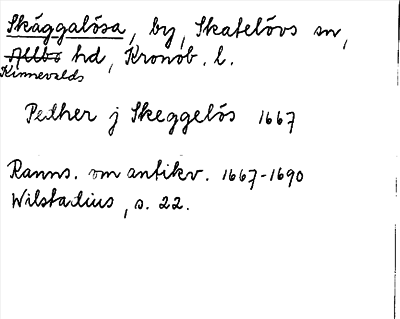 Skäggalösa, by, Skatelövs sn,
Allbo hd, Kronob. l.
Kinnevalds
Pether j Skeggelös 1667
Ranns. om antikv. 1667-1690
Wilstadius, s. 22.